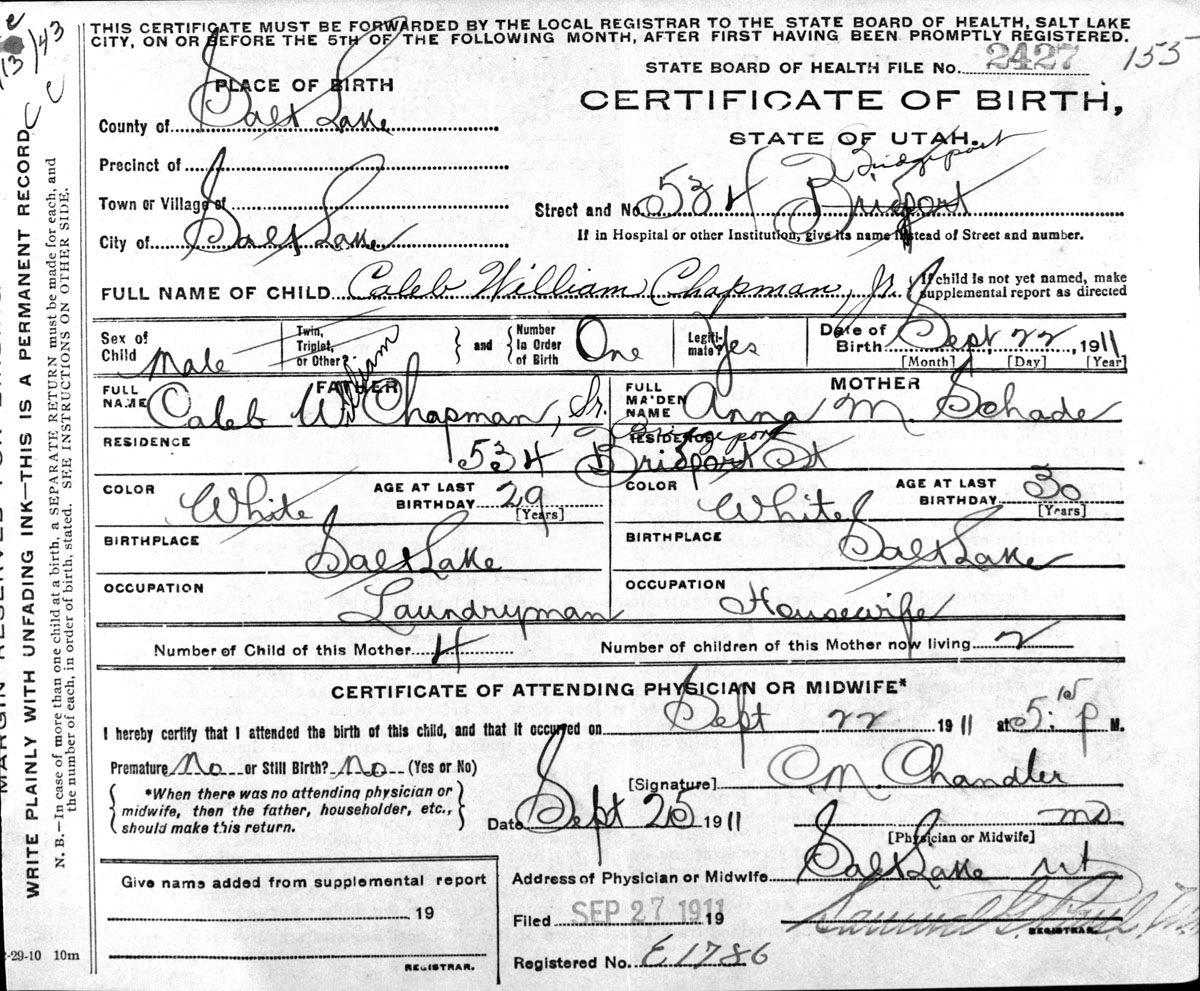 THIS CERTIFICATE MUST BE FORWARDED BY THE LOCAL REGISTRAR TO THE STATE BOARD OF HEALTH, SALT LAKE
CITY, ON OR BEFORE THE 5TH OF THE FOLLOWING MONTH, AFTER FIRST HAVING BEEN PROMPTLY REGISTERED.
STATE BOARD OF HEALTH FILE No. 2427 155
PLACE OF BIRTH
CERTIFICATE OF BIRTH,
STATE OF UTAH.
County of Salt Lake
Precinct of
Bridgeport
Town or Village of
Street and No. 534 Briegport
City of Salt Lake
If in Hospital or other Institution, give its name instead of Street and number.
FULL NAME OF CHILD Caleb William Chapman, Jr. { If child is not yet named, make supplemental report as directed
Sex of Child Male Twin, Triplet, or Other? } and { Number In Order of Birth One Legitimate? Yes Date of Birth Sept 22, 1911
[Month] [Day] [Year]
FATHER
FULL NAME Caleb William Chapman, Sr.
MOTHER
FULL MAIDEN NAME Anna M. Schade
RESIDENCE
RESIDENCE
Bridgeport
534 Briegport St
COLOR White AGE AT LAST BIRTHDAY 29 [Years]
COLOR White AGE AT LAST BIRTHDAY 30 [Years]
BIRTHPLACE Salt Lake
BIRTHPLACE Salt Lake
OCCUPATION Laundryman
OCCUPATION Housewife
Number of Child of this Mother 4 Number of children of this Mother now living 2
CERTIFICATE OF ATTENDING PHYSICIAN OR MIDWIFE*
I hereby certify that I attended the birth of this child, and that it occured on Sept 22 1911 at 5:15 P M.
Premature No or Still Birth? No (Yes or No)
[Signature] C. M. Chandler
{ *When there was no attending physician or midwife, then the father, householder, etc., should make this return. }
Date Sept 25 1911 MD
[Physician or Midwife]
Address of Physician or Midwife Salt Lake Ut
Give name added from supplemental report
19
REGISTRAR.
Filed SEP 27 1911 19 Samuel G.
REGISTRAR.
Registered No. E1786
-29-10 10m
WRITE PLAINLY WITH UNFADING INK—THIS IS A PERMANENT RECORD
N. B.—In case of more than one child at a birth, a SEPARATE RETURN must be made for each, and
the number of each, in order of birth, stated. SEE INSTRUCTIONS ON OTHER SIDE.